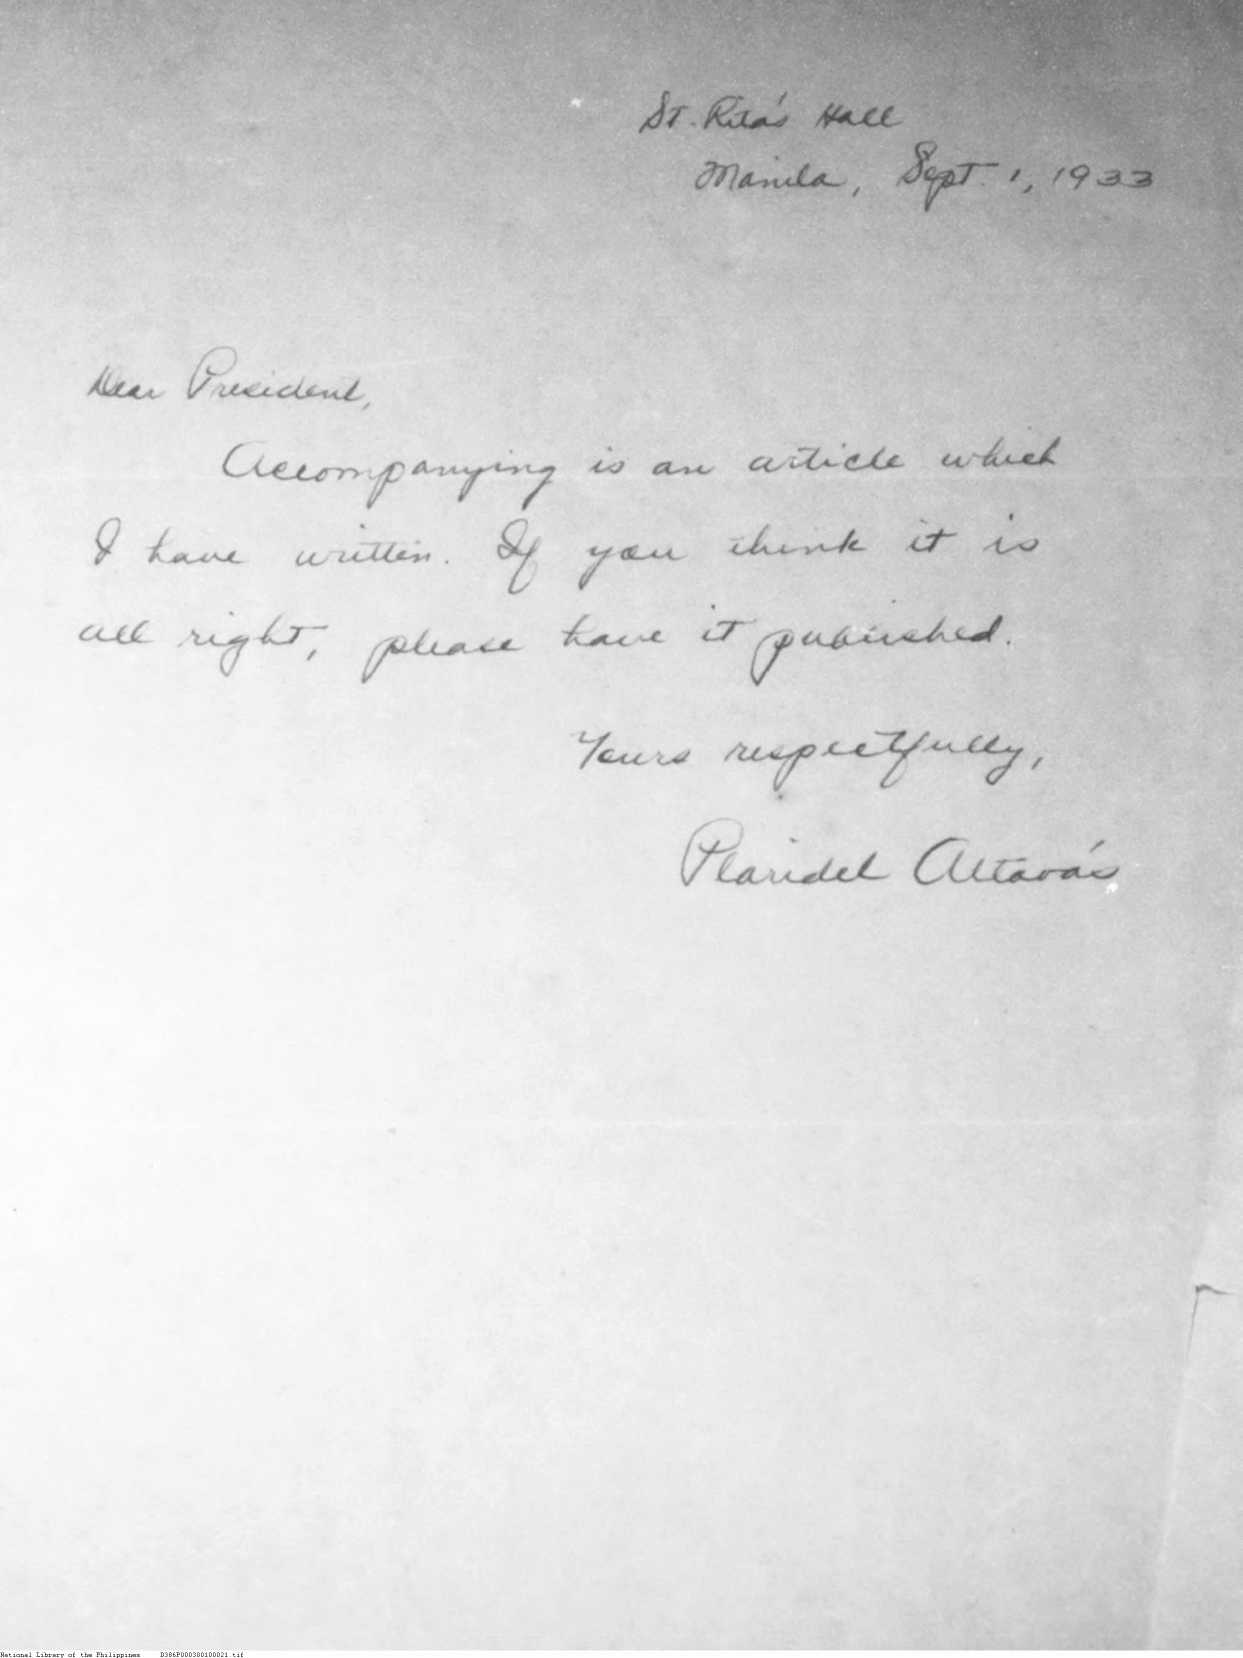 St. Rita's Hall
Manila, Sept. 1, 1933
Dear President,
Accompanying is an article which
I have written. If you think it is
all right, please have it published.
Yours respectfully,
Plaridel Altavás
National Library of the Philippines D386P000380100021.tif